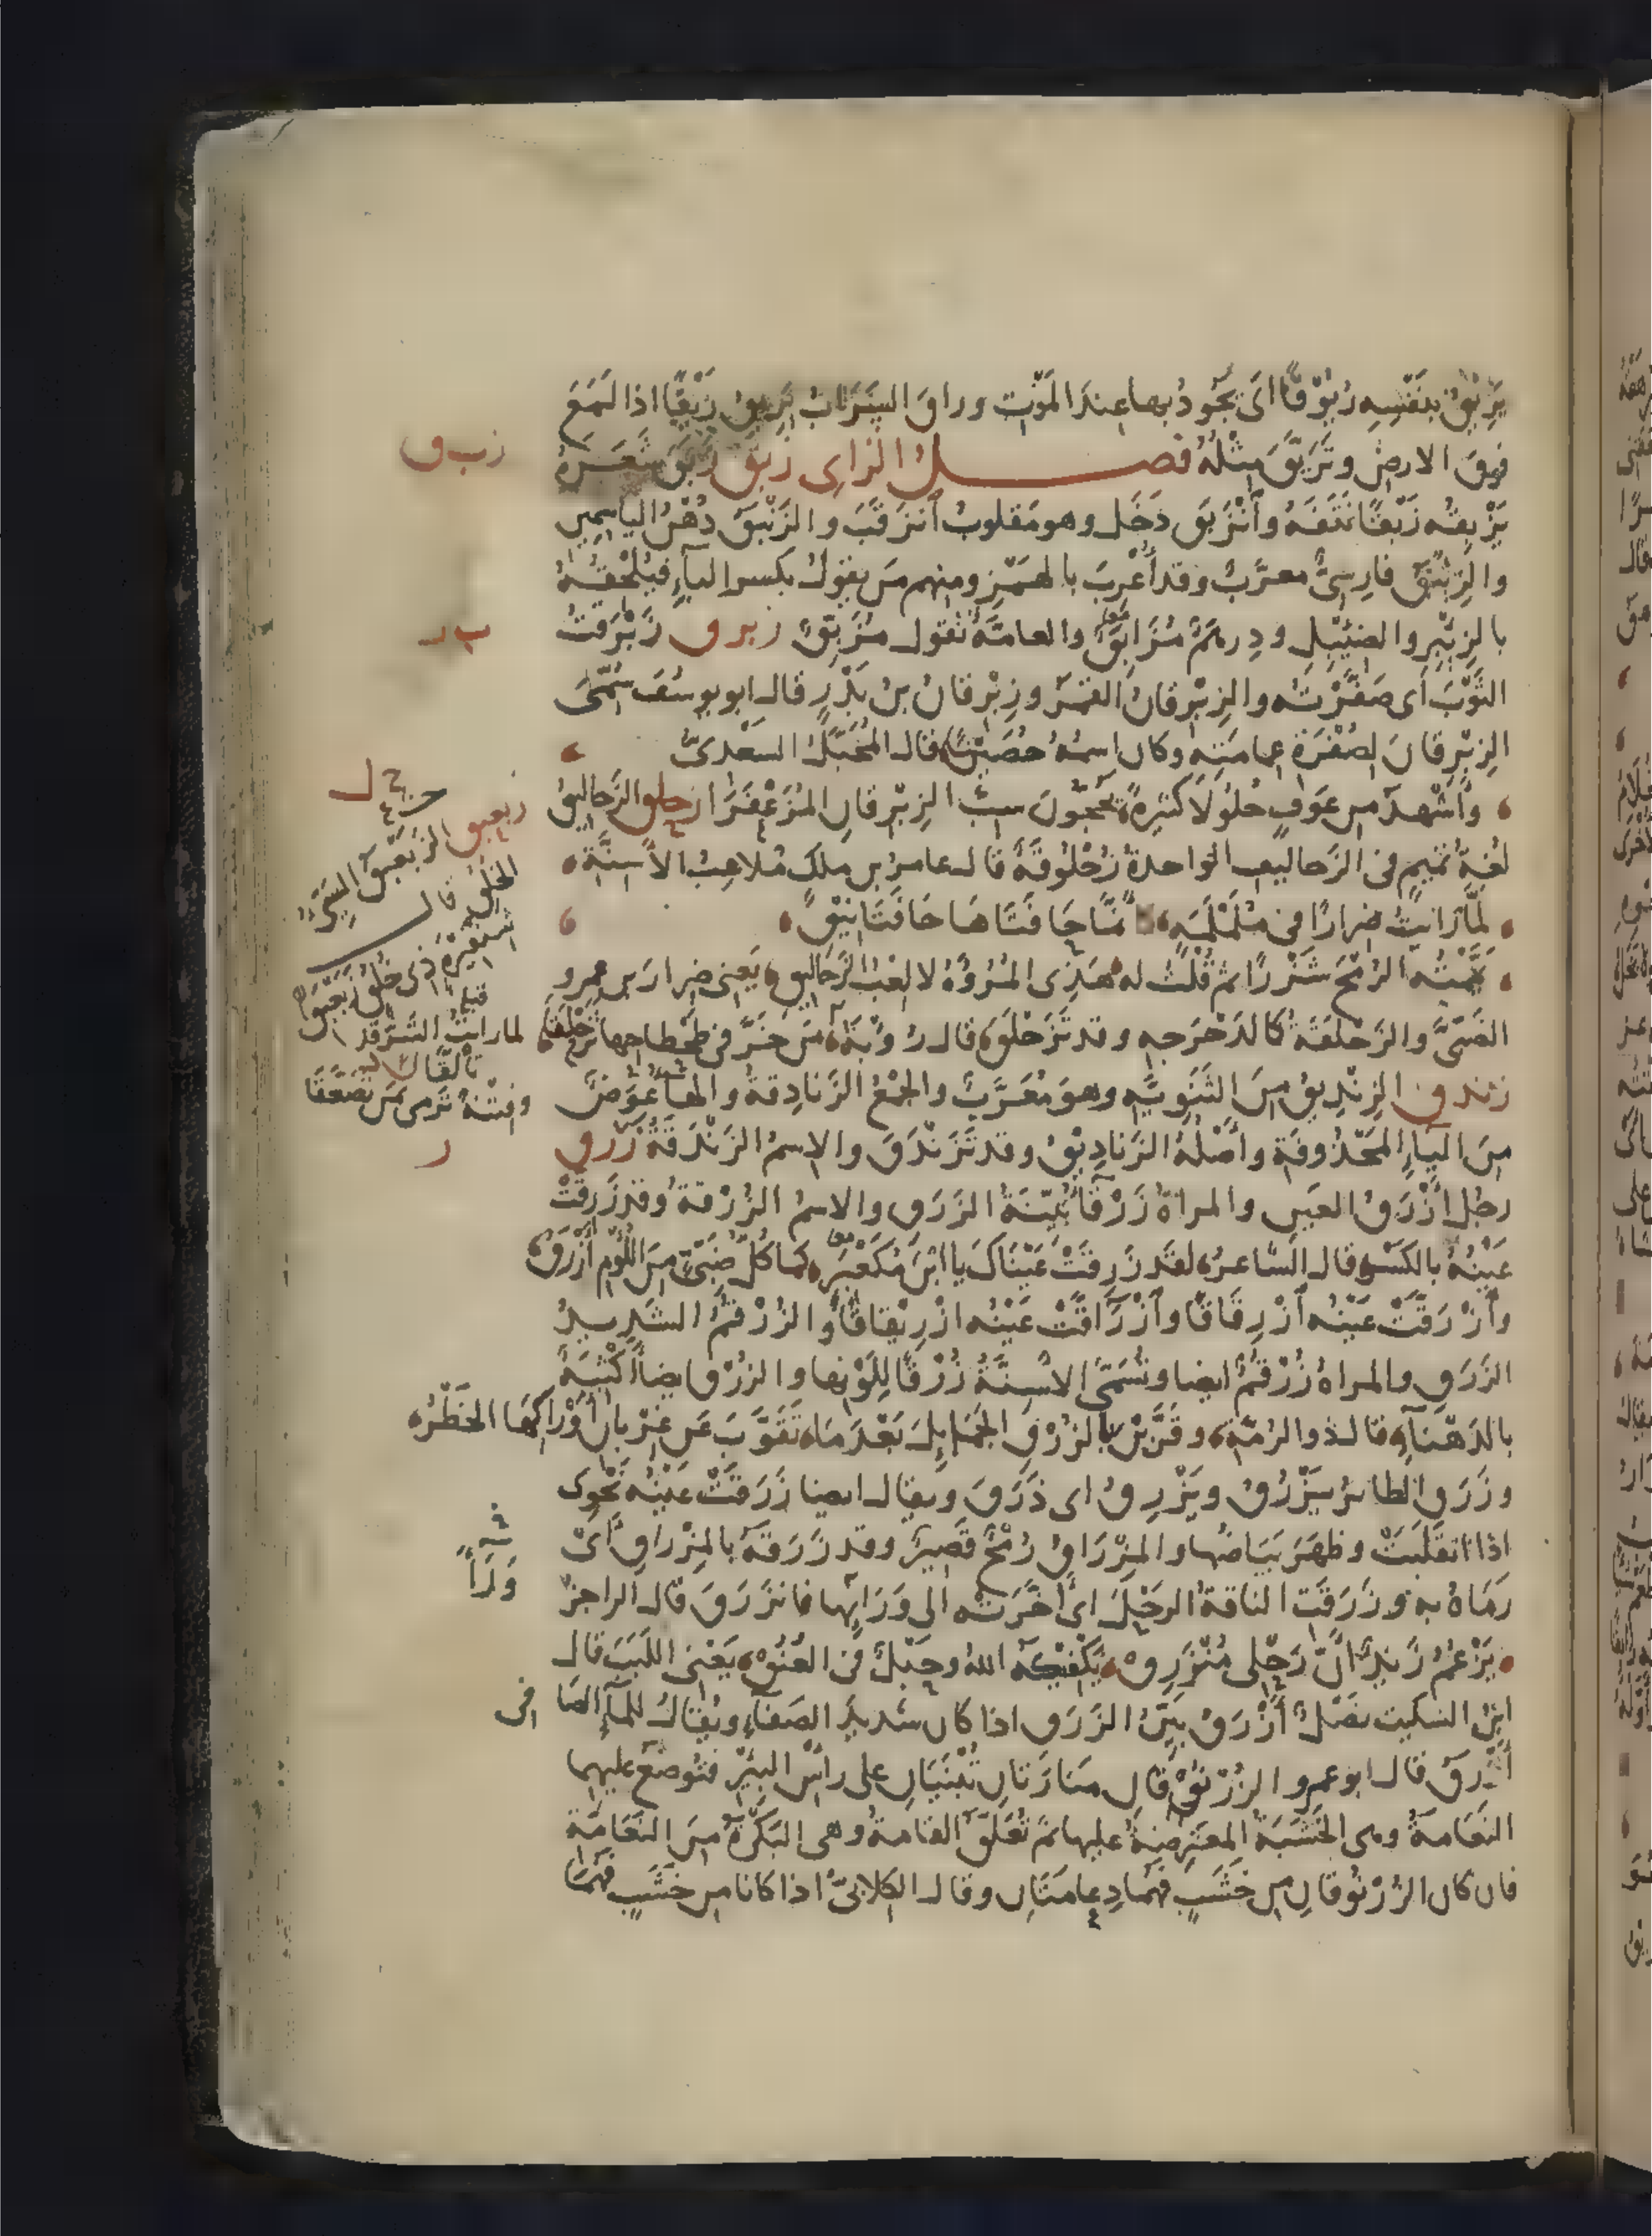 يَرِيْقُ بنَفْسِهِ رُيُوْقًا اَى يَجُودُ بها عِندَ المَوْت وراقَ السَّرَابُ يَرِيقُ رَيْقًا اذا لَمَعَ
فوقَ الارضِ وتَرَيَّقَ مِثْلُهُ فصــل الزاى زبق زَبَقَ شَعَرَهُ
يَزْبِقُه زَبْقًا نَتَفَهُ وٱنْزَبَق دَخَل وهو مَقلوبُ ٱنزَقَبَ والزَنْبَقُ دُهْنُ الياسَمِين
والزِئْبَقُ فارِسىٌّ معرَّبٌ وقد أُعْرِبَ بالهَمْزِ ومنهم مَن يقولُ بكسر الباءِ فيُلْحِقُهُ
بالزِئْبِرِ والضِئْبِلِ ودِرهَمٌ مُزَأْبَقٌ والعامَّةُ تقول مُزَبَّقٌ زبرق زَبْرَقتُ
الثَوْبَ اَى صَفَّرْتُه والزِبْرِقانُ القَمَرُ وزِبْرِقانُ بنُ بَدْرٍ قال ابو يوسُفَ سُمِّىَ
الزِبْرِقانَ لِصُفْرَةِ عِمامَتِهِ وكان اسمُهُ حُصَيْنًا قال المُخَبَّلُ السَعْدىُّ
وأَشْهَدُ من عَوْفٍ حُلولًا كثيرةً يَحُجّونَ سِبَّ الزِبْرِقانِ المُزَعْفَرَا زحلق الزَحاليقُ
لُغةُ تميمٍ فى الزَحاليف الواحدةُ زُحْلُوقَةٌ قال عامرُ بن ملك مُلاعِبُ الأَسِنَّةِ
لَمّا رَايتُ ضِرارًا فى مُلَمْلَمَةٍ كأنّما حافَتاها حافَتا نِيْقِ
يَمَّمْتُه الرُمْحَ شَزْرًا ثم قُلْتُ له هَذِى المُرُوَّةُ لا لِعْبُ الزَحاليقِ يَعنى ضِرارَ بن عمرو
الضَبِّىَّ والزَحْلَقَةُ كالدَحْرَجه وقد تَزَحْلَقَ قال رُؤْبَة مَن خَرَّ فى طَحْطاحِها تَزَحْلَقا
زندق الزِنْدِيقُ مِنَ الثَنَوِيَّه وهو مُعَرَّبٌ والجَمْعُ الزَنادِقةُ والهاءُ عِوَضٌ
مِنَ الياءِ المَحْذُوفَةِ وأَصْلُهُ الزَنادِيْقُ وقد تَزَنْدَقَ والاِسمُ الزَنْدَقَةُ زرق
رجُل أَزْرَقُ العَينِ والمرأةُ زَرْقاءُ بَيِّنَةُ الزَرَقِ والاسمُ الزُرْقةُ وقد زَرِقَتْ
عَيْنُهُ بالكَسْرِ قال الشاعرُ لقد زَرِقَتْ عَيْنَاكَ يا ابْنَ مُكَعْبَرٍ كما كُلُّ ضَبِّىٍّ مِنَ اللُؤْمِ أَزْرَقُ
وٱزْرَقَّتْ عَيْنُه ٱزْرِقَاقًا وٱزْرَاقَّتْ عَيْنُه ازْرِيْقاقًا والزُرْقُمُ الشَدِيدُ
الزَرَقِ والمراةُ زُرْقُمٌ ايضا وتُسَمَّى الأَسِنَّةُ زُرْقًا لِلَوْنِها والزُرْق ايضا أَكْثِبَةٌ
بالدَهْناءِ قال ذو الرُمَّةِ وقَرَّبْنَ بالزُرْقِ الجَمائلَ بَعْدَ ما تَقَوَّبَ عَن غِرْبانِ أَوْراكِهَا الخَطْرُ
وزَرَق الطائرُ يَزْرُقُ ويَزْرِقُ اى ذَرَقَ ويقال ايضا زَرَقَتْ عَيْنُه نَحْوِى
اذا انقَلَبَتْ وظَهَرَ بَيَاضُها والمِزْرَاقُ رُمْحٌ قَصِيرٌ وقد زَرَقَهُ بالمِزْراقِ أَىْ
رَمَاهُ به وزَرَقَت الناقةُ الرَحْلَ اى أَخَّرَتْه الى وَرَائِها فانزَرَقَ قال الراجز
يَزْعُمُ زَيدٌ أَنَّ رَحْلِى مُنْزَرِقْ يَكْفِيكَهُ اللهُ وحَبْلٌ فى العُنُقْ يَعْنِى اللَبَبَ قال
ابنُ السكيت نَصْلٌ أَزْرَقُ بَيِّنُ الزَرَقِ اذا كان شديدَ الصَفاءِ ويُقالُ للماءِ الصافى
أَزْرَقُ قال ابو عمرو الزُرْنُوْقَانِ مَنارَتانِ تُبْنَيَانِ على رأْسِ البِئْرِ فتُوضَع عليهما
النَعَامَةُ وهى الخَشَبَةُ المعتَرِضَةُ عليها ثم تُعَلَّقُ القامةُ وهى البَكْرَةُ مِنَ النَعَامَةِ
فان كان الزُرْنُوقانِ مِن خَشَبٍ فهُما دِعامَتانِ وقال الكلابىُّ اذا كانا من خَشَبٍ فهُما
زب ق
ب ر
ح ل
زبعبق الزَبَعْبَقُ السَيِّئُ
الخُلُقِ قال
شِنْغِيْرَةٍ ذِى خُلُقٍ زَبَعْبَقِ
قبله
لما رايتُ الشَرَّ قد تألَّقا
وفِتْنَةً تَرمى بمَن تَصَعَّقَا
ر
وَرَاءً